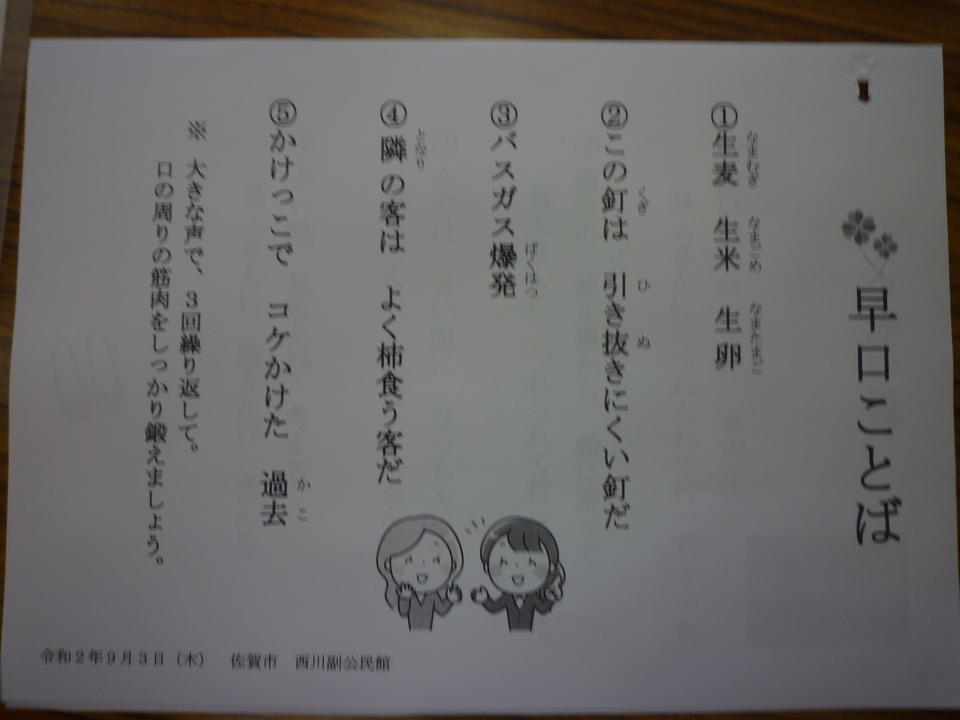 早口ことば
①生麦　生米　生卵
なまむぎ　なまごめ　なまたまご
②この釘は　引き抜きにくい釘だ
くぎ　ひ　ぬ
③バスガス爆発
ばくはつ
④隣の客は　よく柿食う客だ
となり
⑤かけっこで　コケかけた　過去
かこ
※　大きな声で、３回繰り返して。
口の周りの筋肉をしっかり鍛えましょう。
令和２年９月３日（木）　佐賀市　西川副公民館